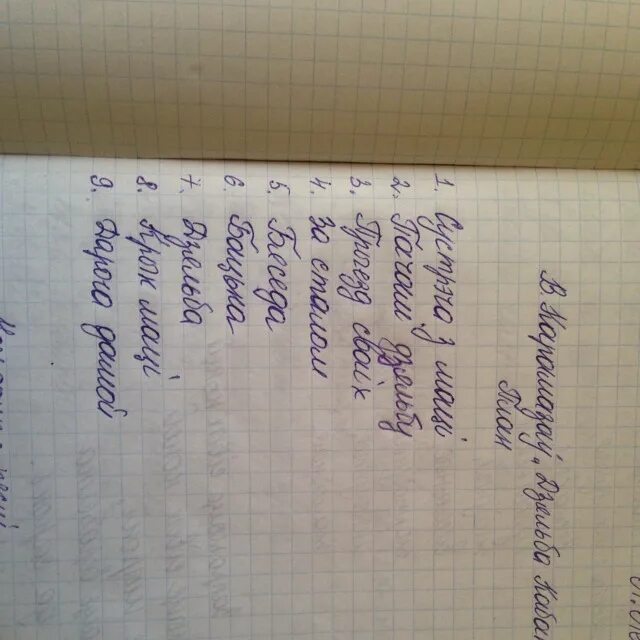 В. Карамазаў „Дзяльба Кабан
План
1. Сустрэча з маці
2. Пачалі дзяльбу
3. Прыезд сваік
4. За сталом
5. Бяседа
6. Бацька
7. Дзяльба
8. Крык маці
9. Дарога дамой